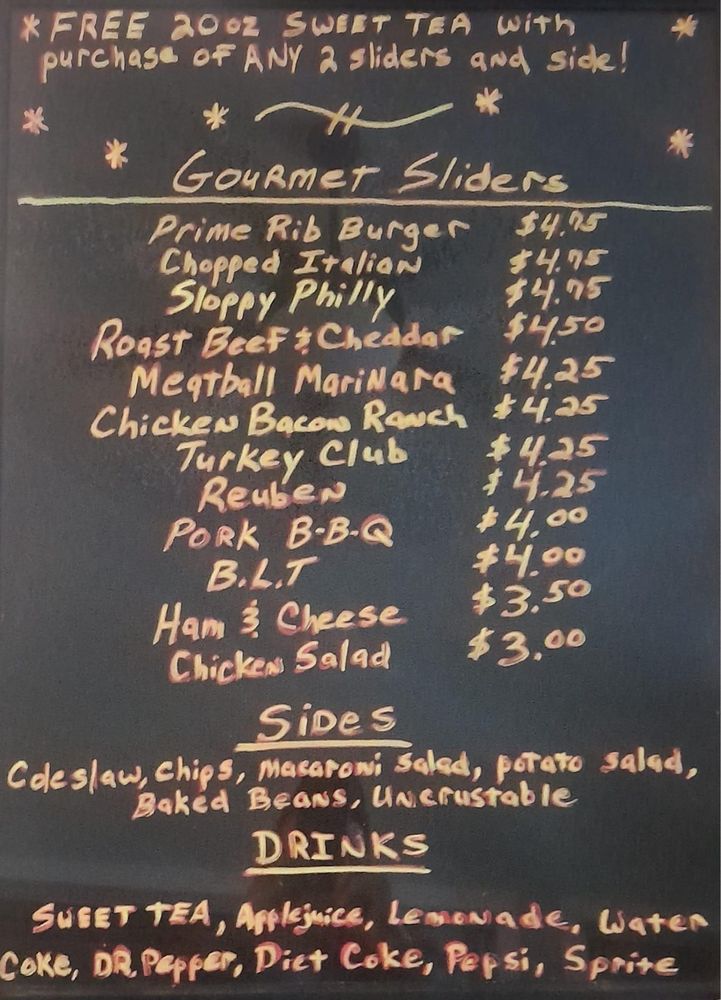 * FREE 20oz SWEET TEA with *
purchase of ANY 2 sliders and side!
Gourmet Sliders
Prime Rib Burger $4.75
Chopped Italian $4.75
Sloppy Philly $4.75
Roast Beef & Cheddar $4.50
Meatball Marinara $4.25
Chicken Bacon Ranch $4.25
Turkey Club $4.25
Reuben $4.25
PORK B-B-Q $4.00
B.L.T $4.00
Ham & Cheese $3.50
Chicken Salad $3.00
Sides
Coleslaw, chips, Macaroni salad, potato salad,
Baked Beans, Uncrustable
DRINKS
SWEET TEA, Applejuice, Lemonade, Water
COKE, DR. Pepper, Diet Coke, Pepsi, Sprite